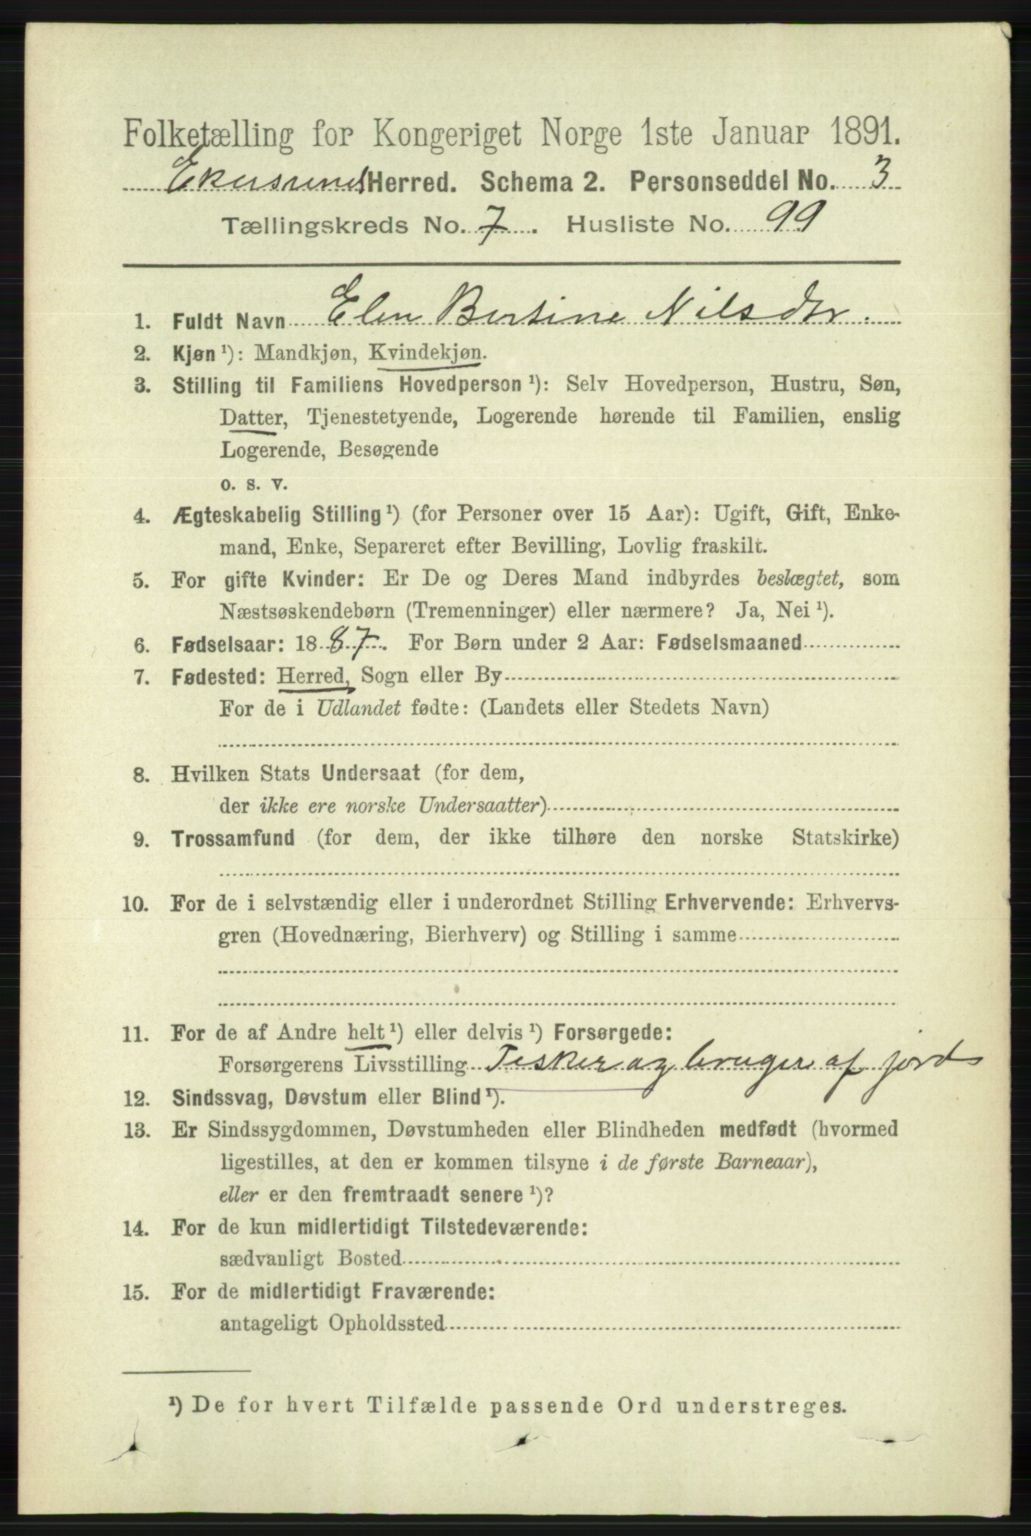 Folketælling for Kongeriget Norge 1ste Januar 1891.
Ekersund Herred. Schema 2. Personseddel No. 3
Tællingskreds No. 7. Husliste No. 99
1. Fuldt Navn Elen Bertine Nilsdtr.
2. Kjøn ¹): Mandkjøn, Kvindekjøn.
3. Stilling til Familiens Hovedperson ¹): Selv Hovedperson, Hustru, Søn,
Datter, Tjenestetyende, Logerende hørende til Familien, enslig
Logerende, Besøgende
o. s. v.
4. Ægteskabelig Stilling ¹) (for Personer over 15 Aar): Ugift, Gift, Enke-
mand, Enke, Separeret efter Bevilling, Lovlig fraskilt.
5. For gifte Kvinder: Er De og Deres Mand indbyrdes beslægtet, som
Næstsøskendebørn (Tremenninger) eller nærmere? Ja, Nei ¹).
6. Fødselsaar: 1887. For Børn under 2 Aar: Fødselsmaaned
7. Fødested: Herred, Sogn eller By
For de i Udlandet fødte: (Landets eller Stedets Navn)
8. Hvilken Stats Undersaat (for dem,
der ikke ere norske Undersaatter)
9. Trossamfund (for dem, der ikke tilhøre den norske Statskirke)
10. For de i selvstændig eller i underordnet Stilling Erhvervende: Erhvervs-
gren (Hovednæring, Bierhverv) og Stilling i samme
11. For de af Andre helt ¹) eller delvis ¹) Forsørgede:
Forsørgerens Livsstilling Fisker og bruger af jord
12. Sindssvag, Døvstum eller Blind ¹).
13. Er Sindssygdommen, Døvstumheden eller Blindheden medfødt (hvormed
ligestilles, at den er kommen tilsyne i de første Barneaar),
eller er den fremtraadt senere ¹)?
14. For de kun midlertidigt Tilstedeværende:
sædvanligt Bosted
15. For de midlertidigt Fraværende:
antageligt Opholdssted
¹) De for hvert Tilfælde passende Ord understreges.